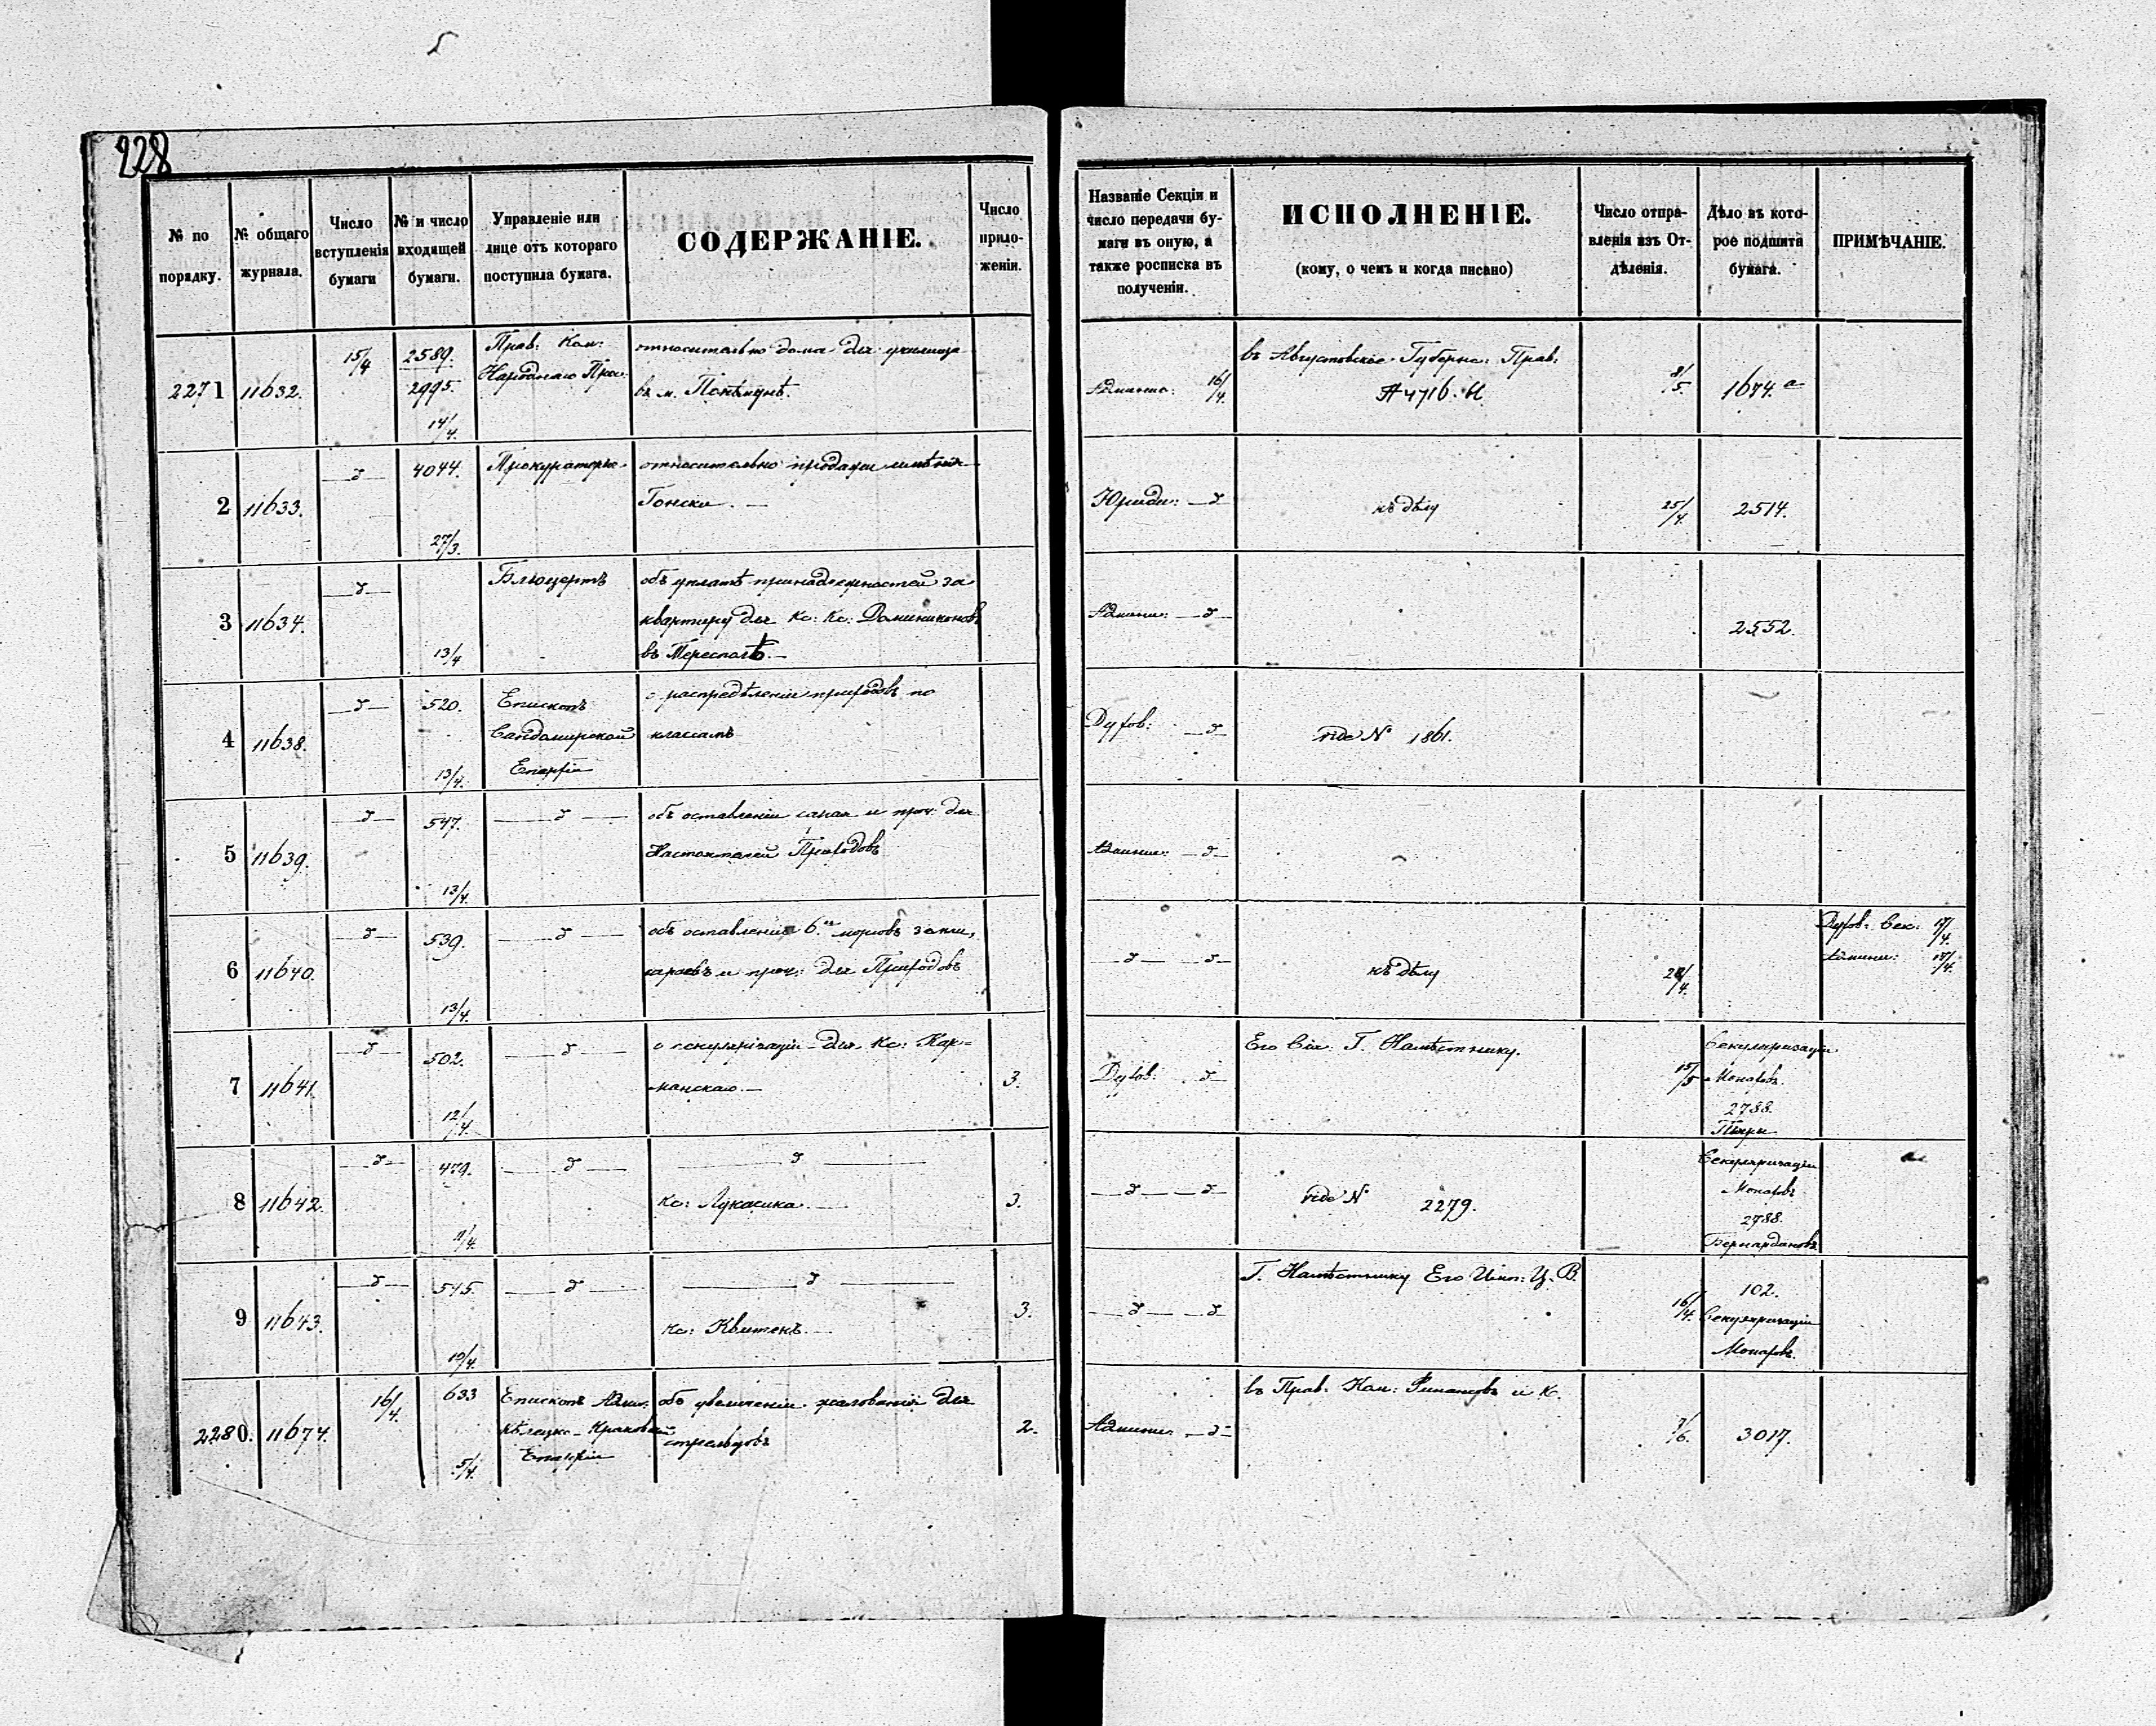 228
№ по порядку.
№ общаго журнала.
Число вступленія бумаги
№ и число входящей бумаги.
Управленіе или лице отъ котораго поступила бумага.
СОДЕРЖАНІЕ.
Число приложеніи.
Названіе Секціи и число передачи бумаги въ оную, а также росписка въ полученіи.
ИСПОЛНЕНІЕ.
(кому, о чемъ и когда писано)
Число отправленія изъ Отдѣленія.
Дѣло въ которое подшита бумага.
ПРИМѢЧАНІЕ.
2271 11632. 15/4 2589. 2995. 14/4.
Прав. Ком:
Народнаго Прос:
относительно дома для училища
въ м. Понѣмунѣ.
16/4.
въ Августовское Губернс: Прав:
8/5. 1674. а
2 11633. 4044. 27/3.
Прокураторъ
относительно продажи имѣнія
Гонски. —
Юриди:
къ дѣлу
25/4. 2514.
3 11634. 13/4
Блюцертъ
объ уплатѣ принадлежностей за
квартиру для Кс: Кс: Доминикановъ
въ Тересполѣ. —
Админи:
2552.
4 11638. 520. 13/4.
Епископъ
Сандомирской
Епархіи
о распредѣленіи приходовъ по
классамъ
Духов:
vide № 1861.
5 11639. 547. 13/4.
объ оставленіи сарая и проч. для
Настоятелей Приходовъ
Админи:
6 11640. 539. 13/4.
объ оставленіи 6.ти морговъ земли,
сараевъ и проч: для Приходовъ
къ дѣлу
Духов: Сек: 17/4.
Админи: 17/4.
7 11641. 502. 12/4.
о секуляризаціи для Кс: Кар=
манскаго. —
3.
Духов:
Его Сія: Г. Намѣстнику.
15/5
Секуляризаціи
Монаховъ.
2788.
8 11642. 479. 9/4.
Кс: Лукасика. —
3.
vide № 2279.
Секуляризаціи
Монаховъ
2788.
Бернардановъ
9 11643. 545. 10/4.
Кс: Квитекъ. —
3.
Г. Намѣстнику Его Имп: Ц. В.
16/4.
102.
Секуляризаціи
Монаховъ.
2280. 11674. 16/4. 633 5/4.
Епископъ Адми:
Кѣлецко-Краковской
Епархіи
объ увеличеніи жалованія для
2.
Админи:
въ Прав: Ком: Финансовъ и К.
7/6. 3017.